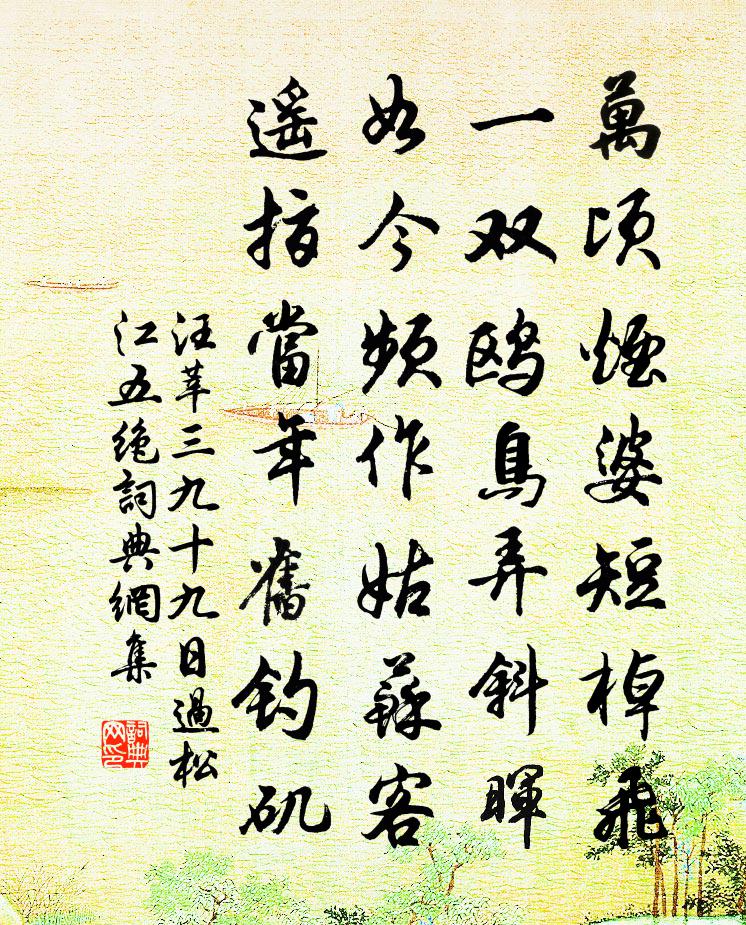 萬頃煙婆短棹飛
一双鸥鳥弄斜暉
如今頻作姑蘇客
遥指當年舊钓矶
汪莘三九十九日過松
江五絶詞典網集
詞典网印